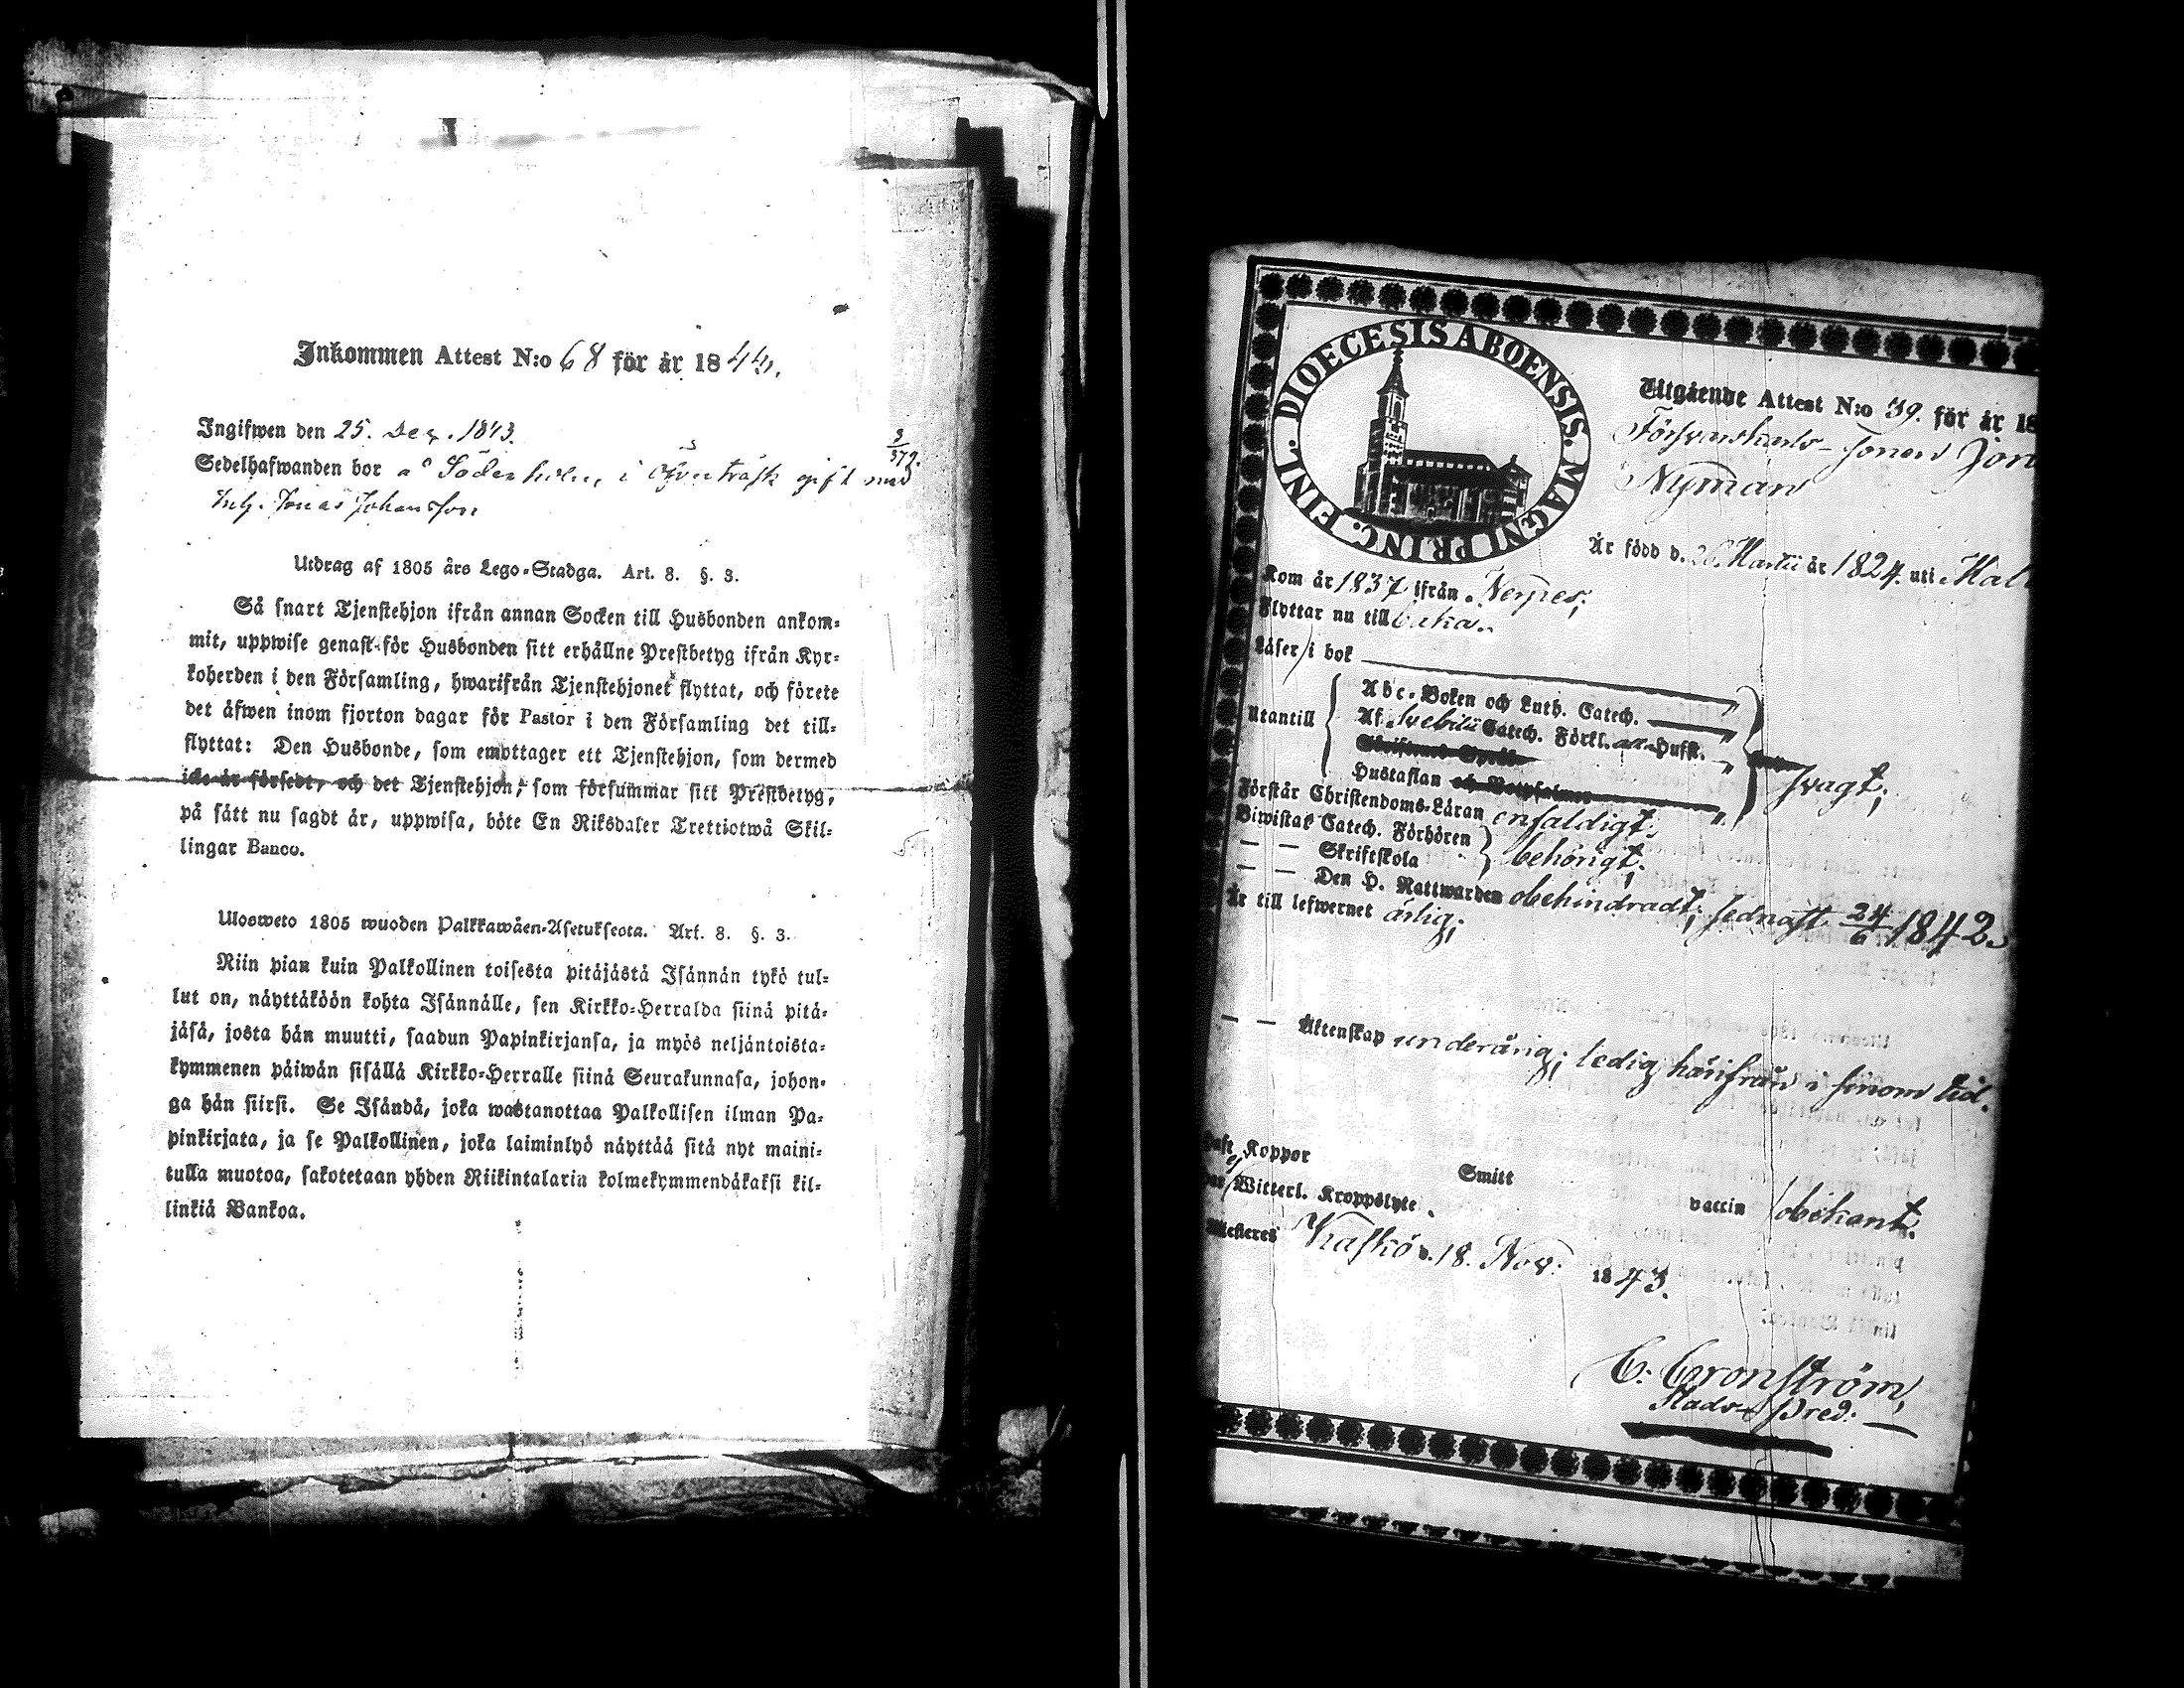 Inkommen Attest N:o 68 för år 1844.
Ingifwen den 25. Dec. 1843.
3/579.
Sedelhafwanden bor å Söderholm, i Öfverträsk gift med
Jonas Johansson
Utdrag af 1805 års Lego-Stadga. Art. 8. §. 3.
Så snart Tjenstehjon ifrån annan Socken till Husbonden ankom-
mit, uppwise genast för Husbonden sitt erhållne Prestbetyg ifrån Kyr-
koherden i den Församling, hwarifrån Tjenstehjonet flyttat, och förete
det äfwen inom fjorton dagar för Pastor i den Församling det till-
flyttat: Den Husbonde, som emottager ett Tjenstehjon, som dermed
icke är försedt, och det Tjenstehjon, som försummar sitt Prestbetyg,
på sätt nu sagdt är, uppwisa, böte En Riksdaler Trettiotwå Skil-
lingar Banco.
Ulosweto 1805 wuoden Palkkawäen-Asetuksesta. Art. 8. §. 3.
Niin pian kuin Palkollinen toisesta pitäjästä Isännän tykö tul-
lut on, näyttäköön kohta Isännälle, sen Kirkko-Herralda siinä pitä-
jäsä, josta hän muutti, saadun Papinkirjansa, ja myös neljäntoista-
kymmenen päiwän sisällä Kirkko-Herralle siinä Seurakunnasa, johon-
ga hän siirsi. Se Isändä, joka wastanottaa Palkollisen ilman Pa-
pinkirjata, ja se Palkollinen, joka laiminlyö näyttää sitä nyt maini-
tulla muotoa, sakotetaan yhden Riikintalarin kolmekymmendäkaksi kil-
linkiä Bankoa.
FINL. DIOECESIS ABOENSIS. MAGNI PRINC.
Utgående Attest N:o 39. för år 18
Försvarskarls-sonen Jon
Nyman
Är född d. 26 Martii år 1824. uti Mal
Kom år 1837 ifrån Nerpes;
Flyttar nu till baka.
Läser i bok
Utantill
Abc-Boken och Luth. Catech.
Af Svebilii Catech. Förkl. Husst.
Skriftenes Språk
Hustaflan och Botpsalmer
svagt;
Förstår Christendoms-Läran enfaldigt;
Biwistat Catech. Förhören
— — Skriftskola
behörigt;
— — Den H. Nattwarden obehindradt; sednast 24/6 1842.
Är till lefwernet ärlig;
— — Äktenskap underårig; ledig härifrån i sinom tid.
Koppor Smitt vaccin obekant.
ej Witterl. Kroppslyte.
Kaskö d. 18. Nov: 1843.
C. Cronström,
Stads-Pred: